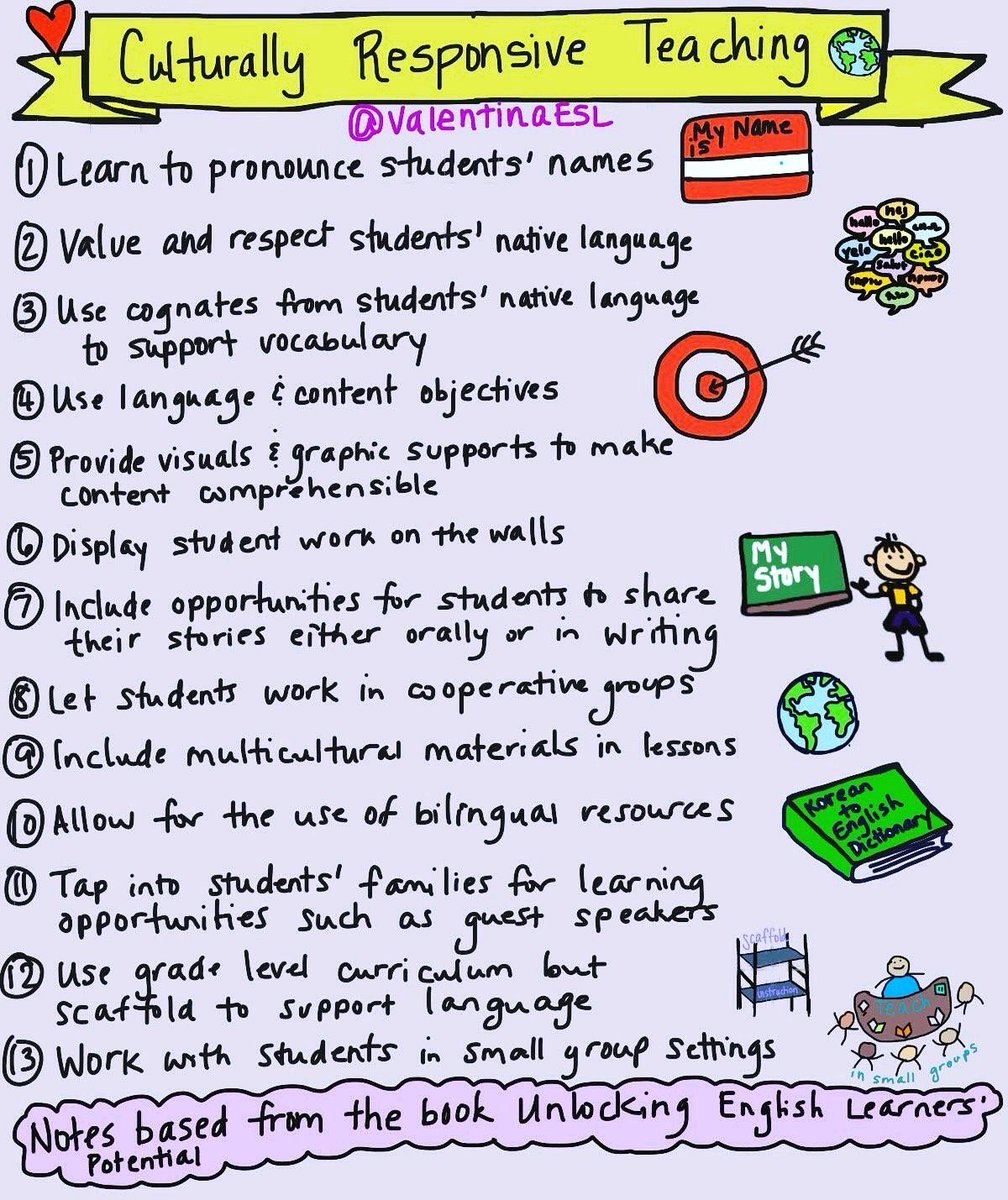 Culturally Responsive Teaching
@ValentinaESL
My Name
is
① Learn to pronounce students' names
② Value and respect students' native language
hej
hallo
hello
ciao
salut
③ Use cognates from students' native language
to support vocabulary
④ Use language & content objectives
⑤ Provide visuals & graphic supports to make
content comprehensible
⑥ Display student work on the walls
My
Story
⑦ Include opportunities for students to share
their stories either orally or in writing
⑧ Let students work in cooperative groups
⑨ Include multicultural materials in lessons
⑩ Allow for the use of bilingual resources
Korean
to
English
Dictionary
⑪ Tap into students' families for learning
opportunities such as guest speakers
⑫ Use grade level curriculum but
scaffold to support language
scaffold
instruction
⑬ Work with students in small group settings
Teach
in small groups
Notes based from the book Unlocking English Learners'
Potential